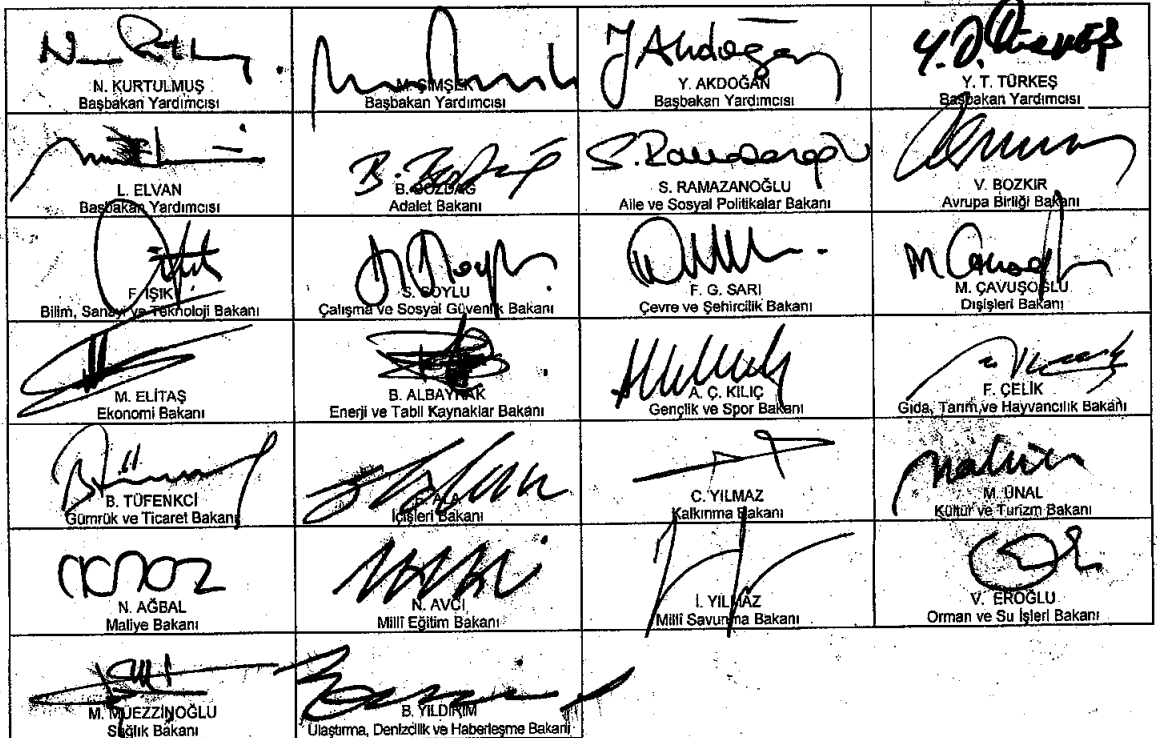 N. KURTULMUŞ
Başbakan Yardımcısı
M. ŞİMŞEK
Başbakan Yardımcısı
Y. AKDOĞAN
Başbakan Yardımcısı
Y. T. TÜRKEŞ
Başbakan Yardımcısı
L. ELVAN
Başbakan Yardımcısı
B. BOZDAĞ
Adalet Bakanı
S. RAMAZANOĞLU
Aile ve Sosyal Politikalar Bakanı
V. BOZKIR
Avrupa Birliği Bakanı
F. IŞIK
Bilim, Sanayi ve Teknoloji Bakanı
S. SOYLU
Çalışma ve Sosyal Güvenlik Bakanı
F. G. SARI
Çevre ve Şehircilik Bakanı
M. ÇAVUŞOĞLU
Dışişleri Bakanı
M. ELİTAŞ
Ekonomi Bakanı
B. ALBAYRAK
Enerji ve Tabii Kaynaklar Bakanı
A. Ç. KILIÇ
Gençlik ve Spor Bakanı
F. ÇELİK
Gıda, Tarım ve Hayvancılık Bakanı
B. TÜFENKCİ
Gümrük ve Ticaret Bakanı
E. ALA
İçişleri Bakanı
C. YILMAZ
Kalkınma Bakanı
M. ÜNAL
Kültür ve Turizm Bakanı
N. AĞBAL
Maliye Bakanı
N. AVCI
Millî Eğitim Bakanı
İ. YILMAZ
Millî Savunma Bakanı
V. EROĞLU
Orman ve Su İşleri Bakanı
M. MÜEZZİNOĞLU
Sağlık Bakanı
B. YILDIRIM
Ulaştırma, Denizcilik ve Haberleşme Bakanı